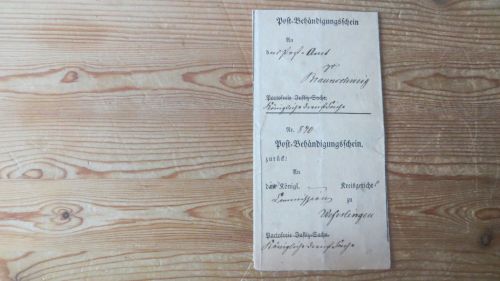 Post-Behändigungsschein
An
das Post-Amt
zu
Braunschweig
Portofreie Justiz-Sache.
Königliche Dienst Sache
Nr. 890
Post-Behändigungsschein,
zurück:
An
das Königl. Kreisgericht
Commission zu
Weferlingen
Portofreie Justiz-Sache.
Königliche Dienst Sache